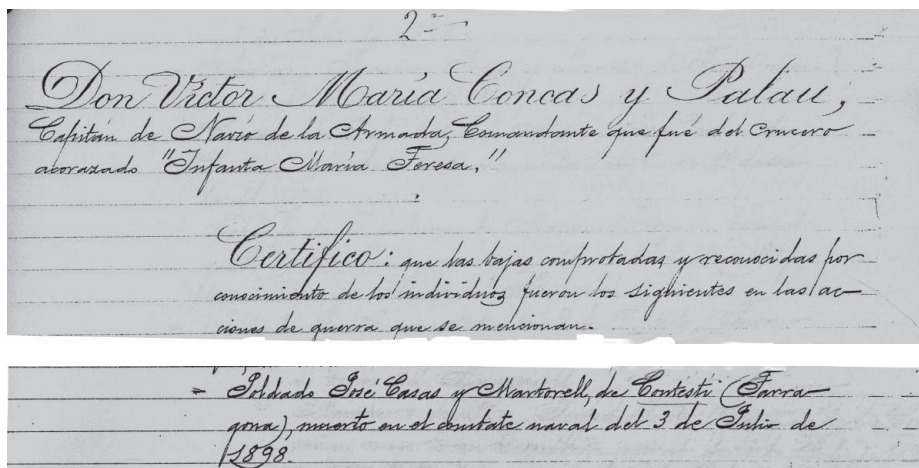 2º
Don Victor María Concas y Palau,
Capitán de Navío de la Armada, Comandante que fué del Crucero
acorazado "Infanta María Teresa,"
Certifico: que las bajas comprobadas y reconocidas por
conocimiento de los individuos fueron los siguientes en las ac-
ciones de guerra que se mencionan.
= Soldado José Casas y Martorell, de Contestí (Tarra-
gona), muerto en el combate naval del 3 de Julio de
1898.